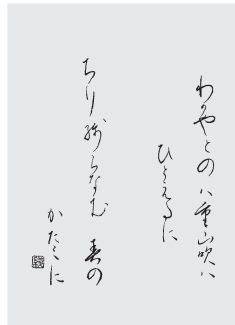 わかやとの八重山吹ハ
ひとへたに
ちり残らなむ 春の
かたみに